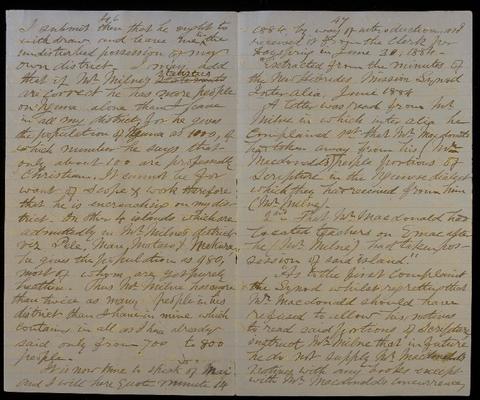 46
I submit then that he ought to
withdraw and leave me in the
undisturbed possession of my
own district. I may add
that if Mr Milne's statistics
are correct he has more people
on Nguna alone than I have
in all my district, for he gives
the population of Nguna as 1000, of
which number he says that
only about 100 are professedly
Christian. It cannot be for
want of scope & work therefore
that he is encroaching on my dis-
trict. On other 4 islands which are
admittedly in Mr Milne's district
viz Pele, Mau, Mataso & Makura
he gives the population as 980,
most of whom are yet purely
heathen. Thus Mr Milne has more
than twice as many people in his
district than I have in mine which
contains in all as I have already
said only from 700 to 800
people.
It is now time to speak of Mai
and I will here quote minute 14
47
1884, by way of introduction, as I
received it from the Clerk for
keeping in June 30, 1884.
"Extracted from the minutes of
the New Hebrides Mission Synod
Inter alia, June 1884
A letter was read from Mr
Milne in which inter alia he
complained 1st that Mr Macdonald
had taken away from his (Mr
Macdonald's) people portions of
Scripture in the Nguna dialect
which they had received from him
(Mr Milne).
2nd That Mr Macdonald had
located teachers on Emae after
he (Mr Milne) had taken pos-
session of said island."
"As to the first complaint
the Synod whilst regretting that
Mr Macdonald should have
refused to allow his natives
to read said portions of Scripture
instruct Mr Milne that in future
he do not supply Mr Macdonald's
natives with any books except
with Mr Macdonald's concurrency